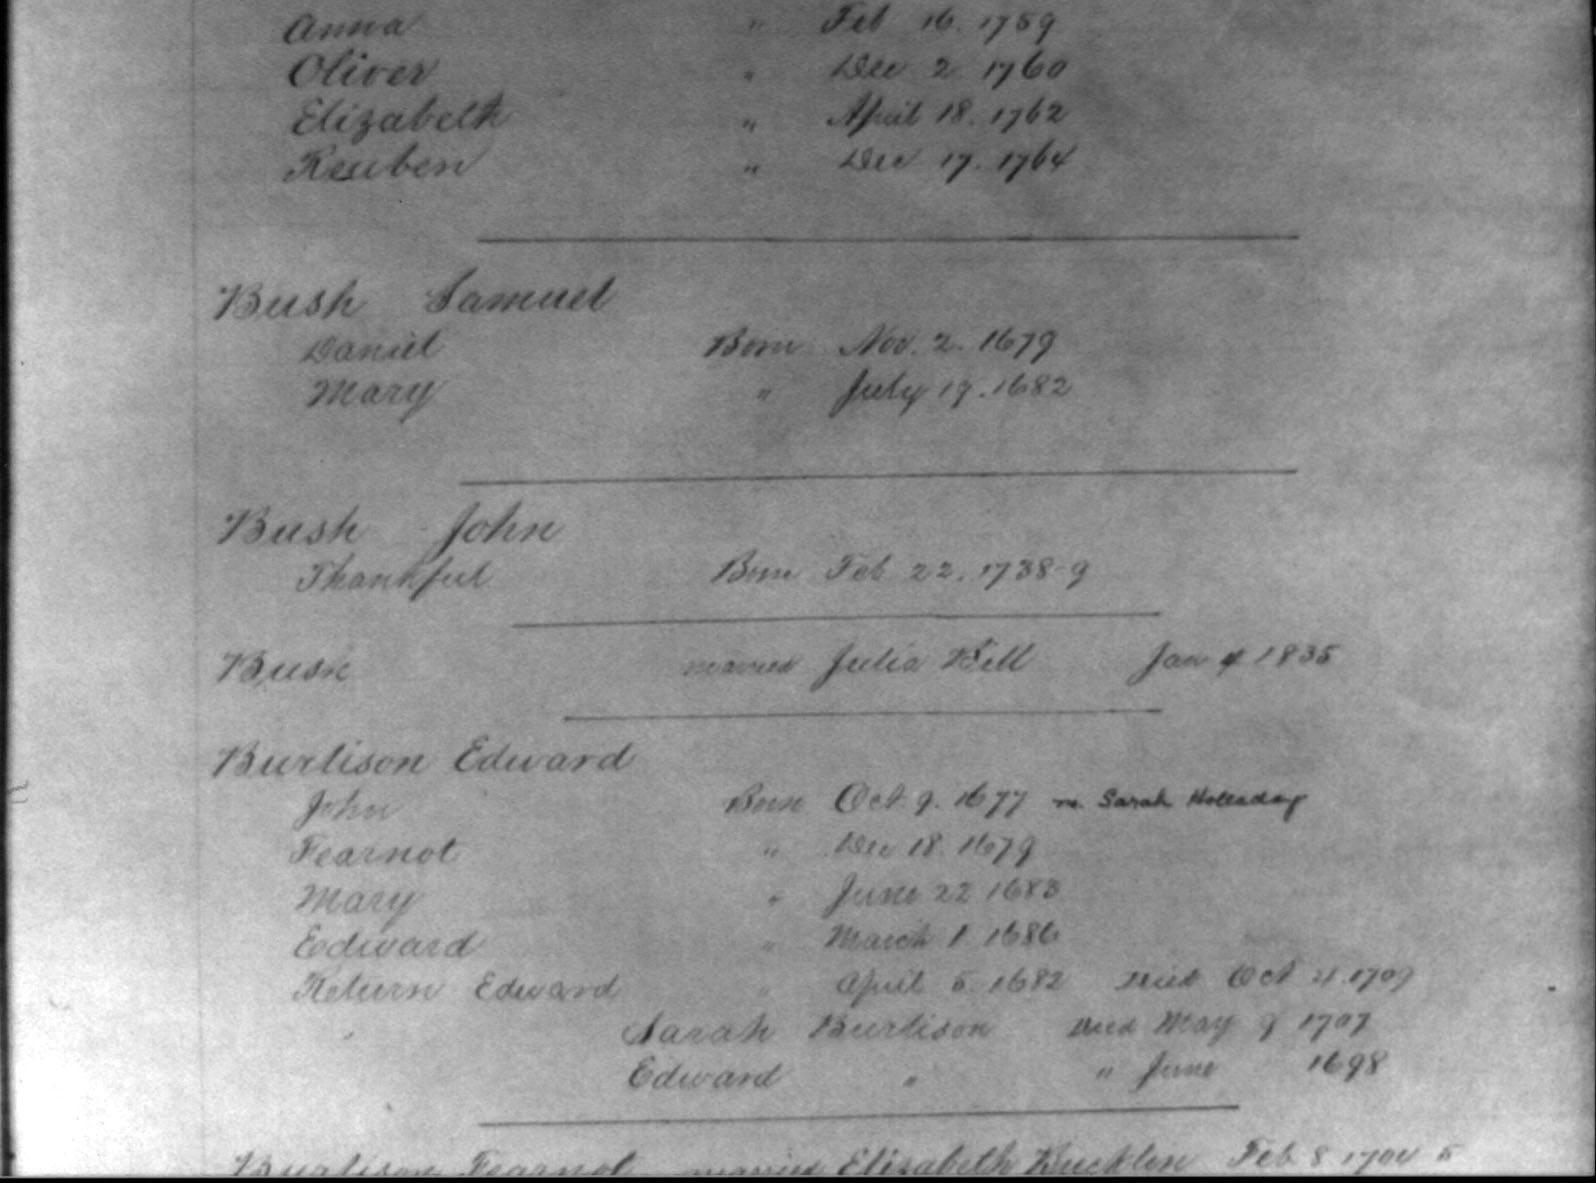 Anna " Feb 16. 1759
Oliver " Dec 2 1760
Elizabeth " April 18. 1762
Reuben " Dec 17. 1764
Bush Samuel
Daniel Born Nov. 2. 1679
Mary " July 19. 1682
Bush John
Thankful Born Feb 22. 1738-9
Bush married Julia Bill Jan 4 1835
Burlison Edward
John Born Oct 9. 1677 m. Sarah Holladay
Fearnot " Dec 18. 1679
Mary " June 22 1683
Edward " March 1 1686
Return Edward " April 5. 1682 Died Oct 21. 1709
Sarah Burlison Died May 9 1707
Edward " " June 1698
Burlison Fearnot married Elizabeth Bucklin Feb 8 1704 5